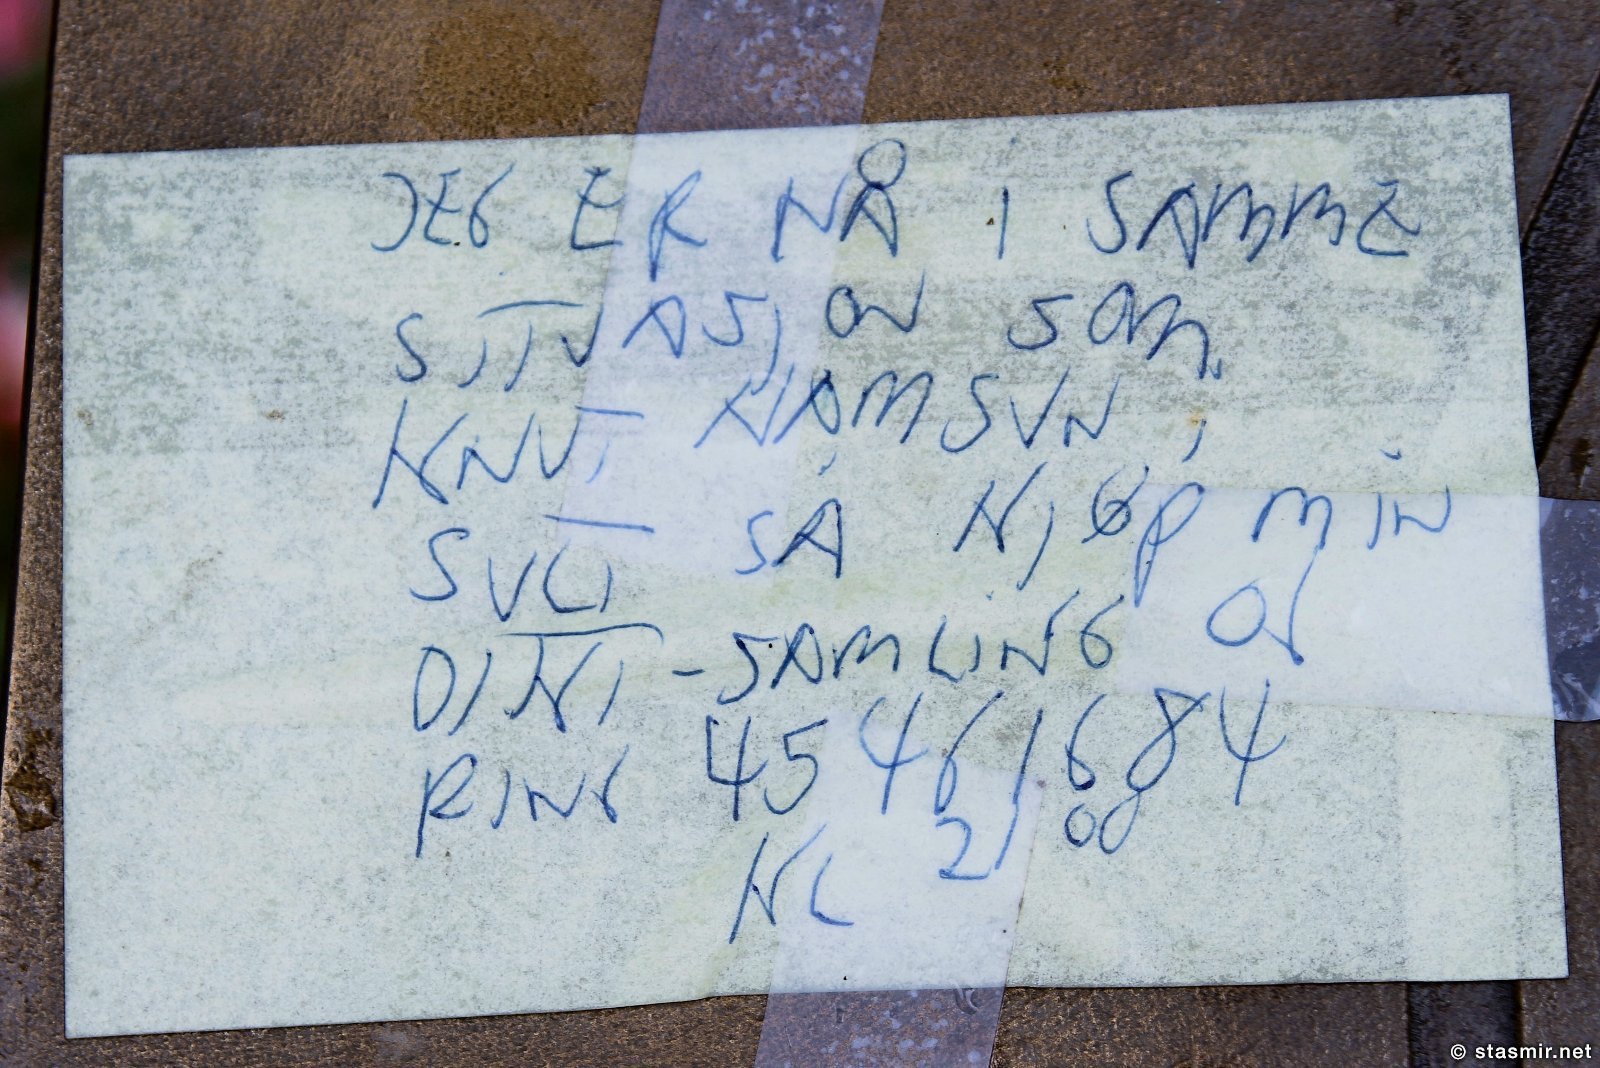 JEG ER NÅ I SAMME
SITUASJON SOM
KNUT HAMSUN I
SULT SÅ KJØP MIN
DIKT-SAMLING OG
RING 45461684
KL 2100
© stasmir.net